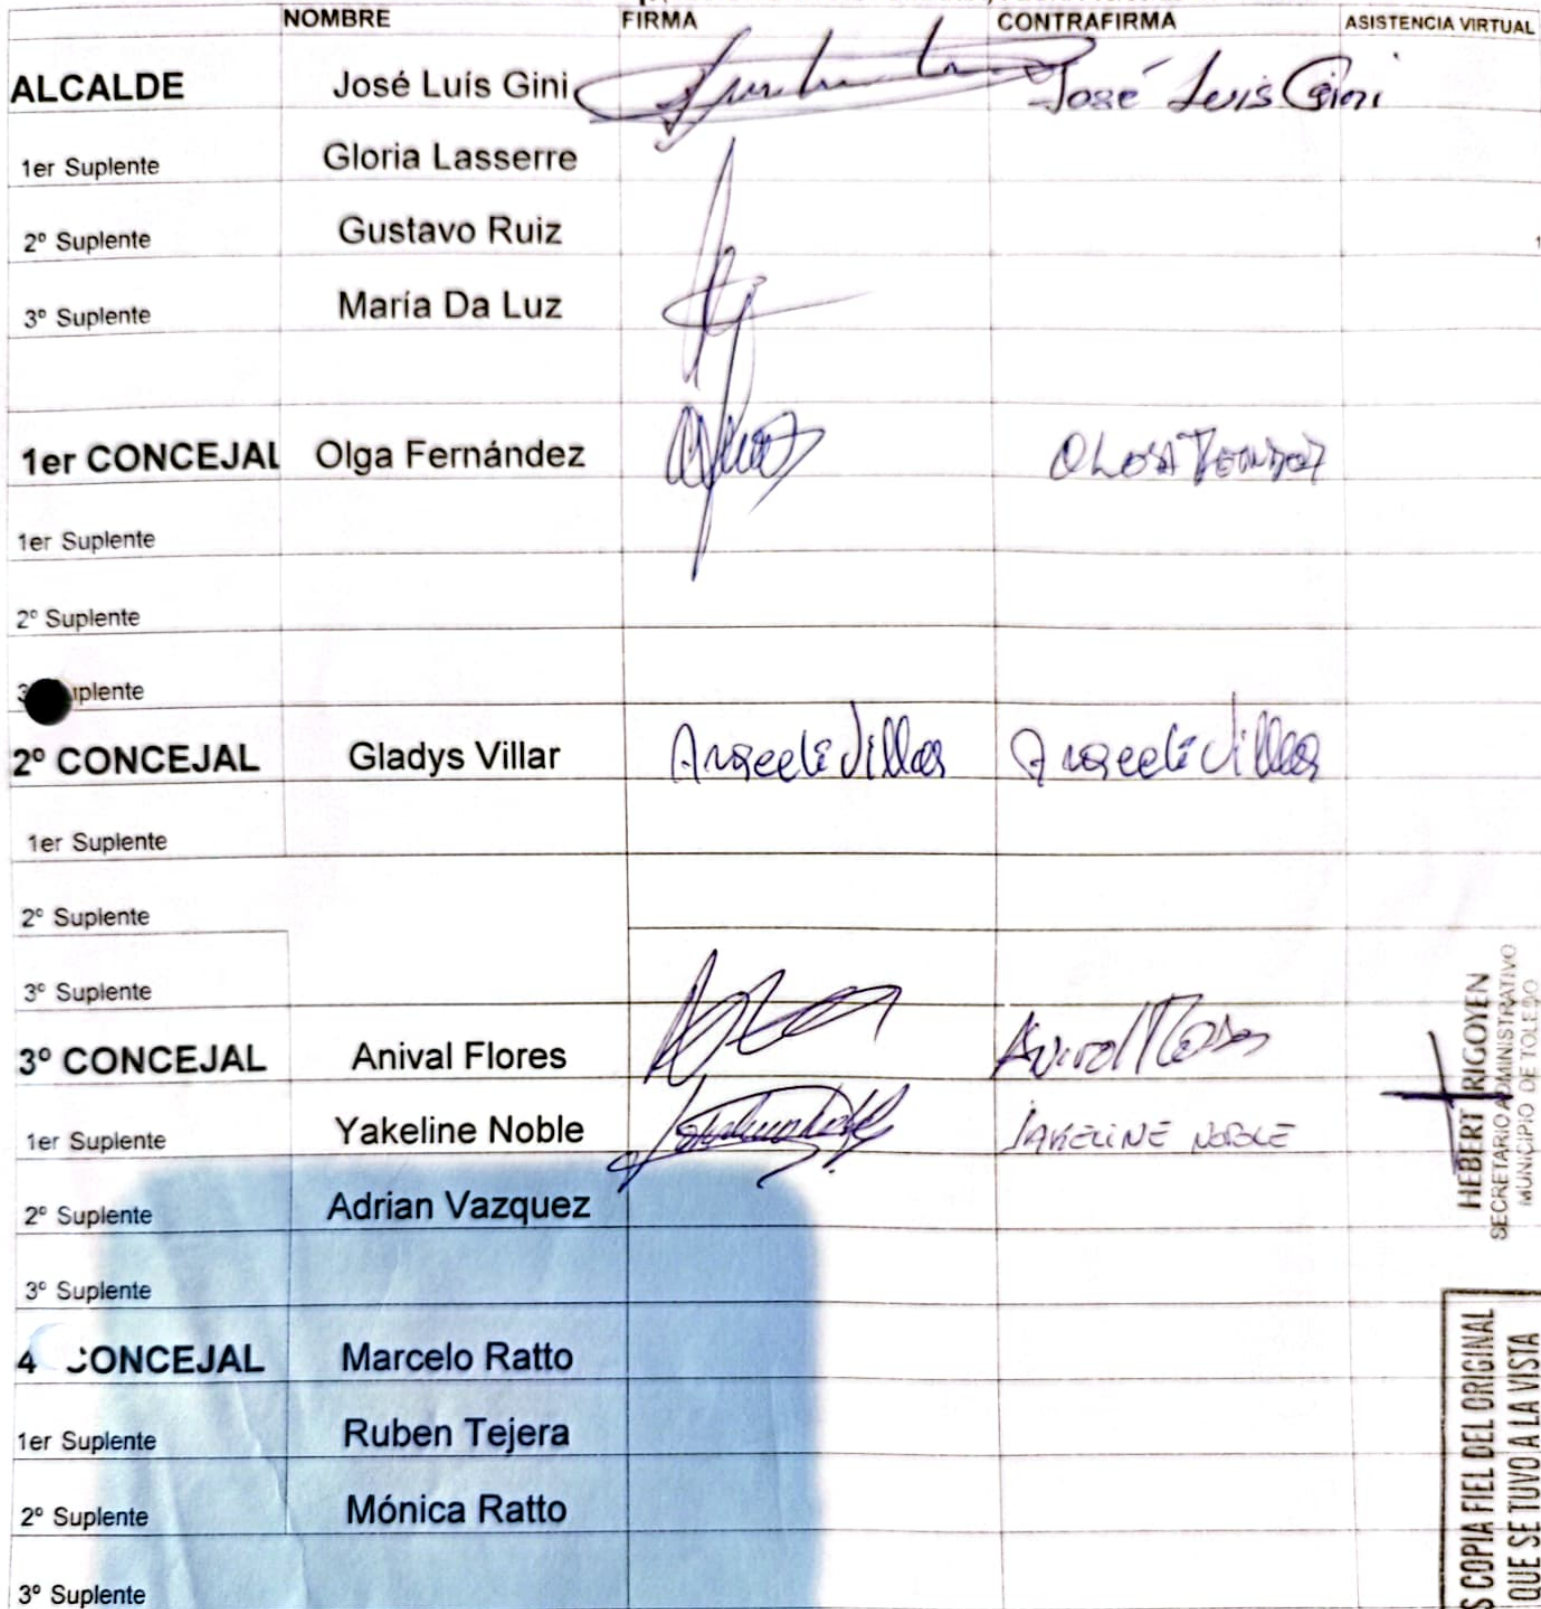 NOMBRE FIRMA CONTRAFIRMA ASISTENCIA VIRTUAL
ALCALDE José Luís Gini José Luis Gini
1er Suplente Gloria Lasserre
2º Suplente Gustavo Ruiz
3º Suplente María Da Luz
1er CONCEJAL Olga Fernández
1er Suplente
2º Suplente
3 uplente
2º CONCEJAL Gladys Villar Araceli Villar Araceli Villar
1er Suplente
2º Suplente
3º Suplente
3º CONCEJAL Anival Flores Anival Flores
1er Suplente Yakeline Noble JAKELINE NOBLE
2º Suplente Adrian Vazquez
3º Suplente
4 CONCEJAL Marcelo Ratto
1er Suplente Ruben Tejera
2º Suplente Mónica Ratto
3º Suplente
HEBERT IRIGOYEN
SECRETARIO ADMINISTRATIVO
MUNICIPIO DE TOLEDO
S COPIA FIEL DEL ORIGINAL
QUE SE TUVO A LA VISTA